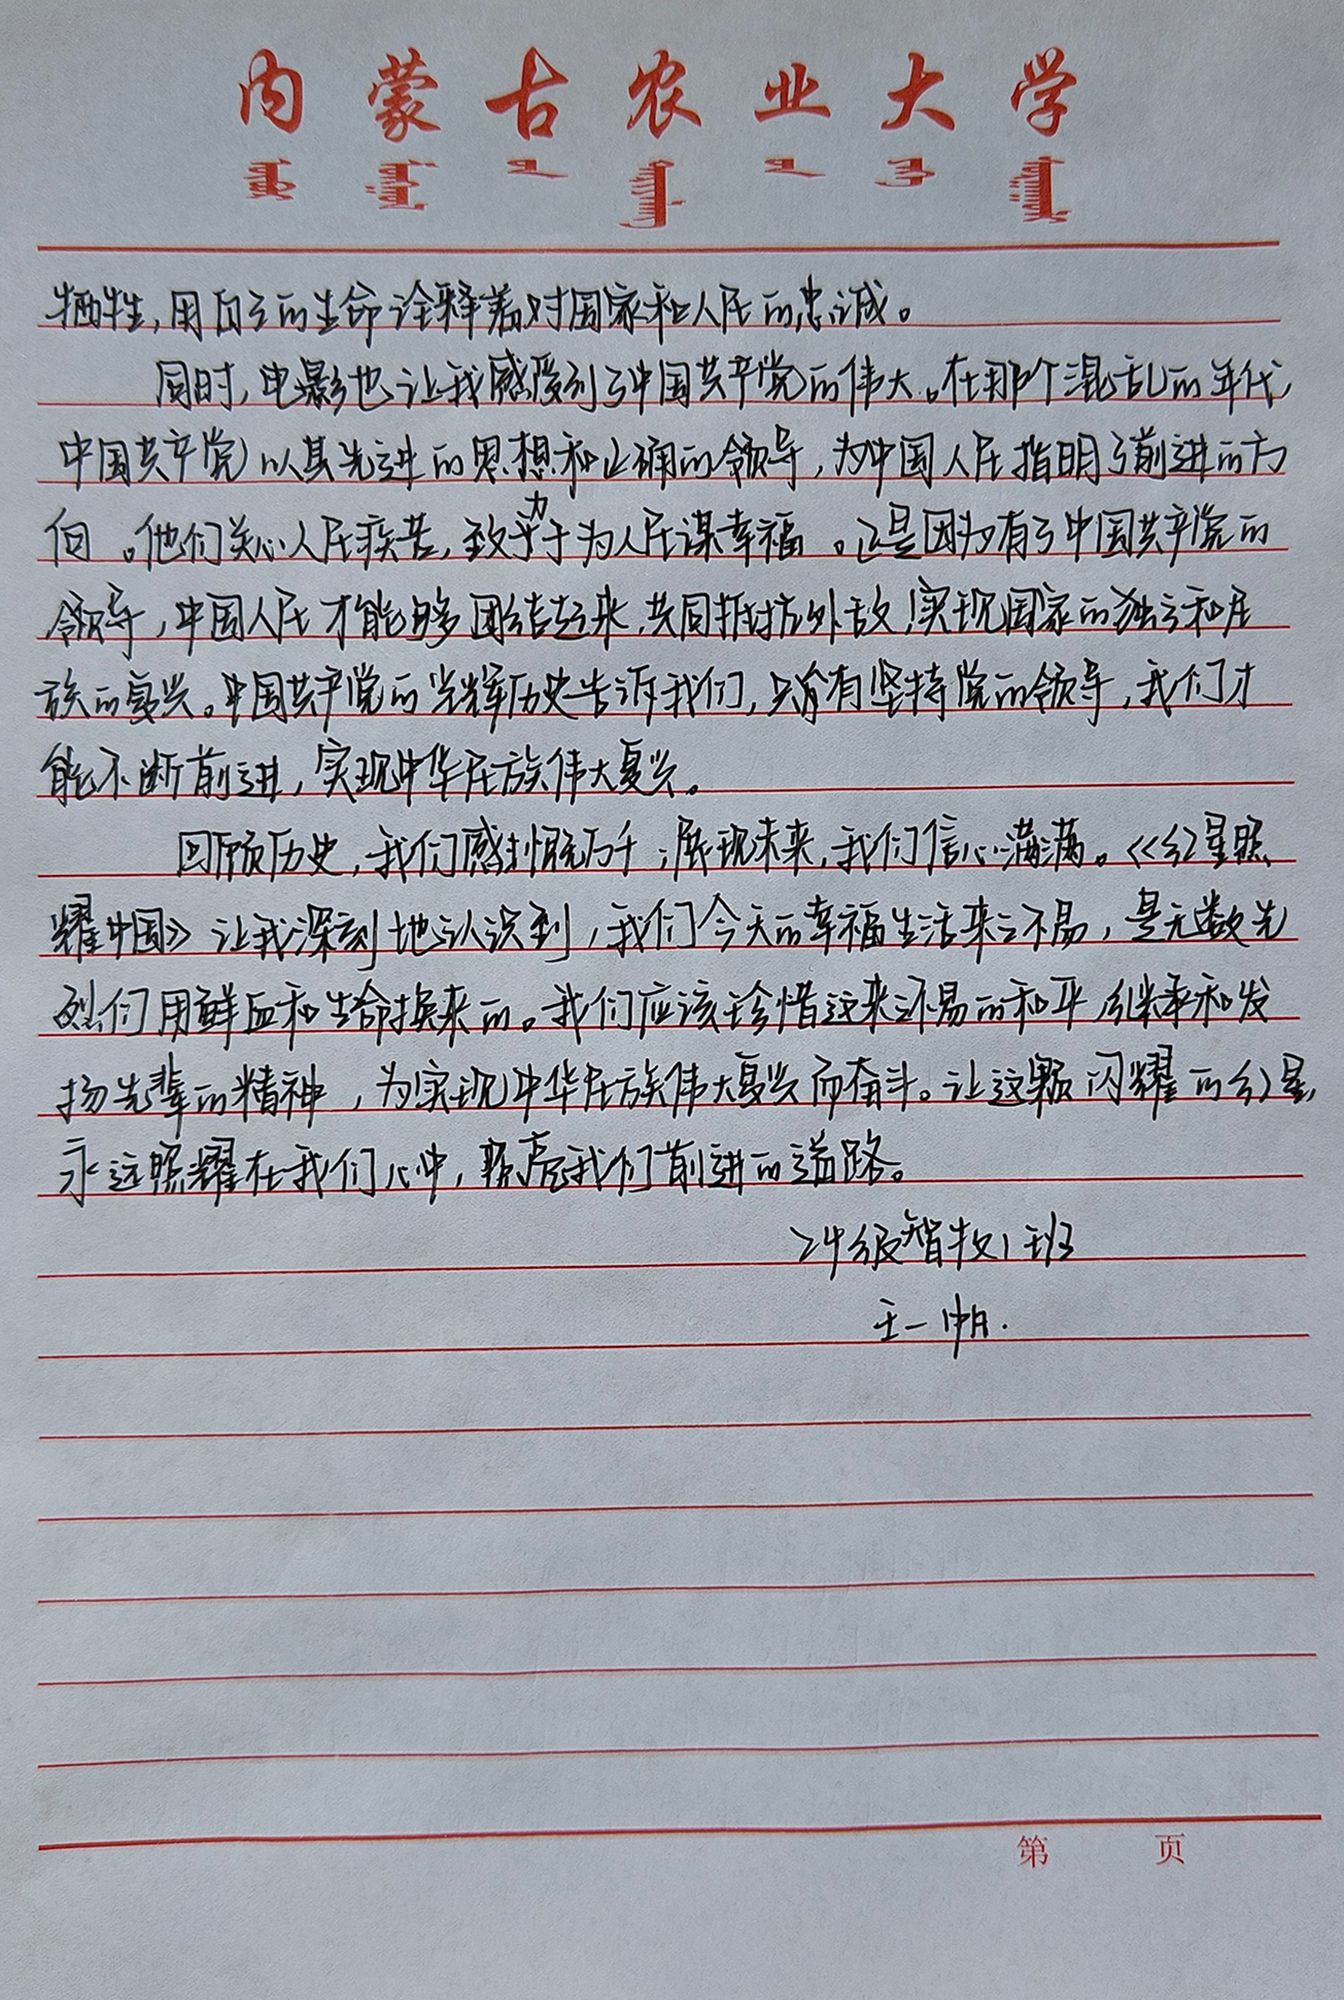 内蒙古农业大学
牺牲，用自己的生命诠释着对国家和人民的忠诚。
同时，电影也让我感受到了中国共产党的伟大。在那个混乱的年代，
中国共产党以其先进的思想和正确的领导，为中国人民指明了前进的方
向。他们关心人民疾苦，致力于为人民谋幸福。正是因为有了中国共产党的
领导，中国人民才能够团结起来，共同抵抗外敌，实现国家的独立和民
族的复兴。中国共产党的光辉历史告诉我们，只有坚持党的领导，我们才
能不断前进，实现中华民族伟大复兴。
回顾历史，我们感慨万千；展现未来，我们信心满满。《红星照
耀中国》让我深刻地认识到，我们今天的幸福生活来之不易，是无数先
烈们用鲜血和生命换来的。我们应该珍惜这来之不易的和平，继承和发
扬先辈的精神，为实现中华民族伟大复兴而奋斗。让这颗闪耀的红星，
永远照耀在我们心中，照亮我们前进的道路。
24级智牧1班
王一帆.
第 页